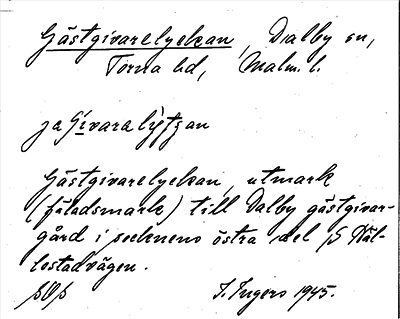 Gästgivarelyckan, Dalby sn,
Torna hd, Malm. l.
ja Givara lyttjan
Gästgivarelyckan, utmark
(fäladsmark) till Dalby gästgivar-
gård i socknens östra del /S Häl-
lestadvägen.
I. Ingers 1945.